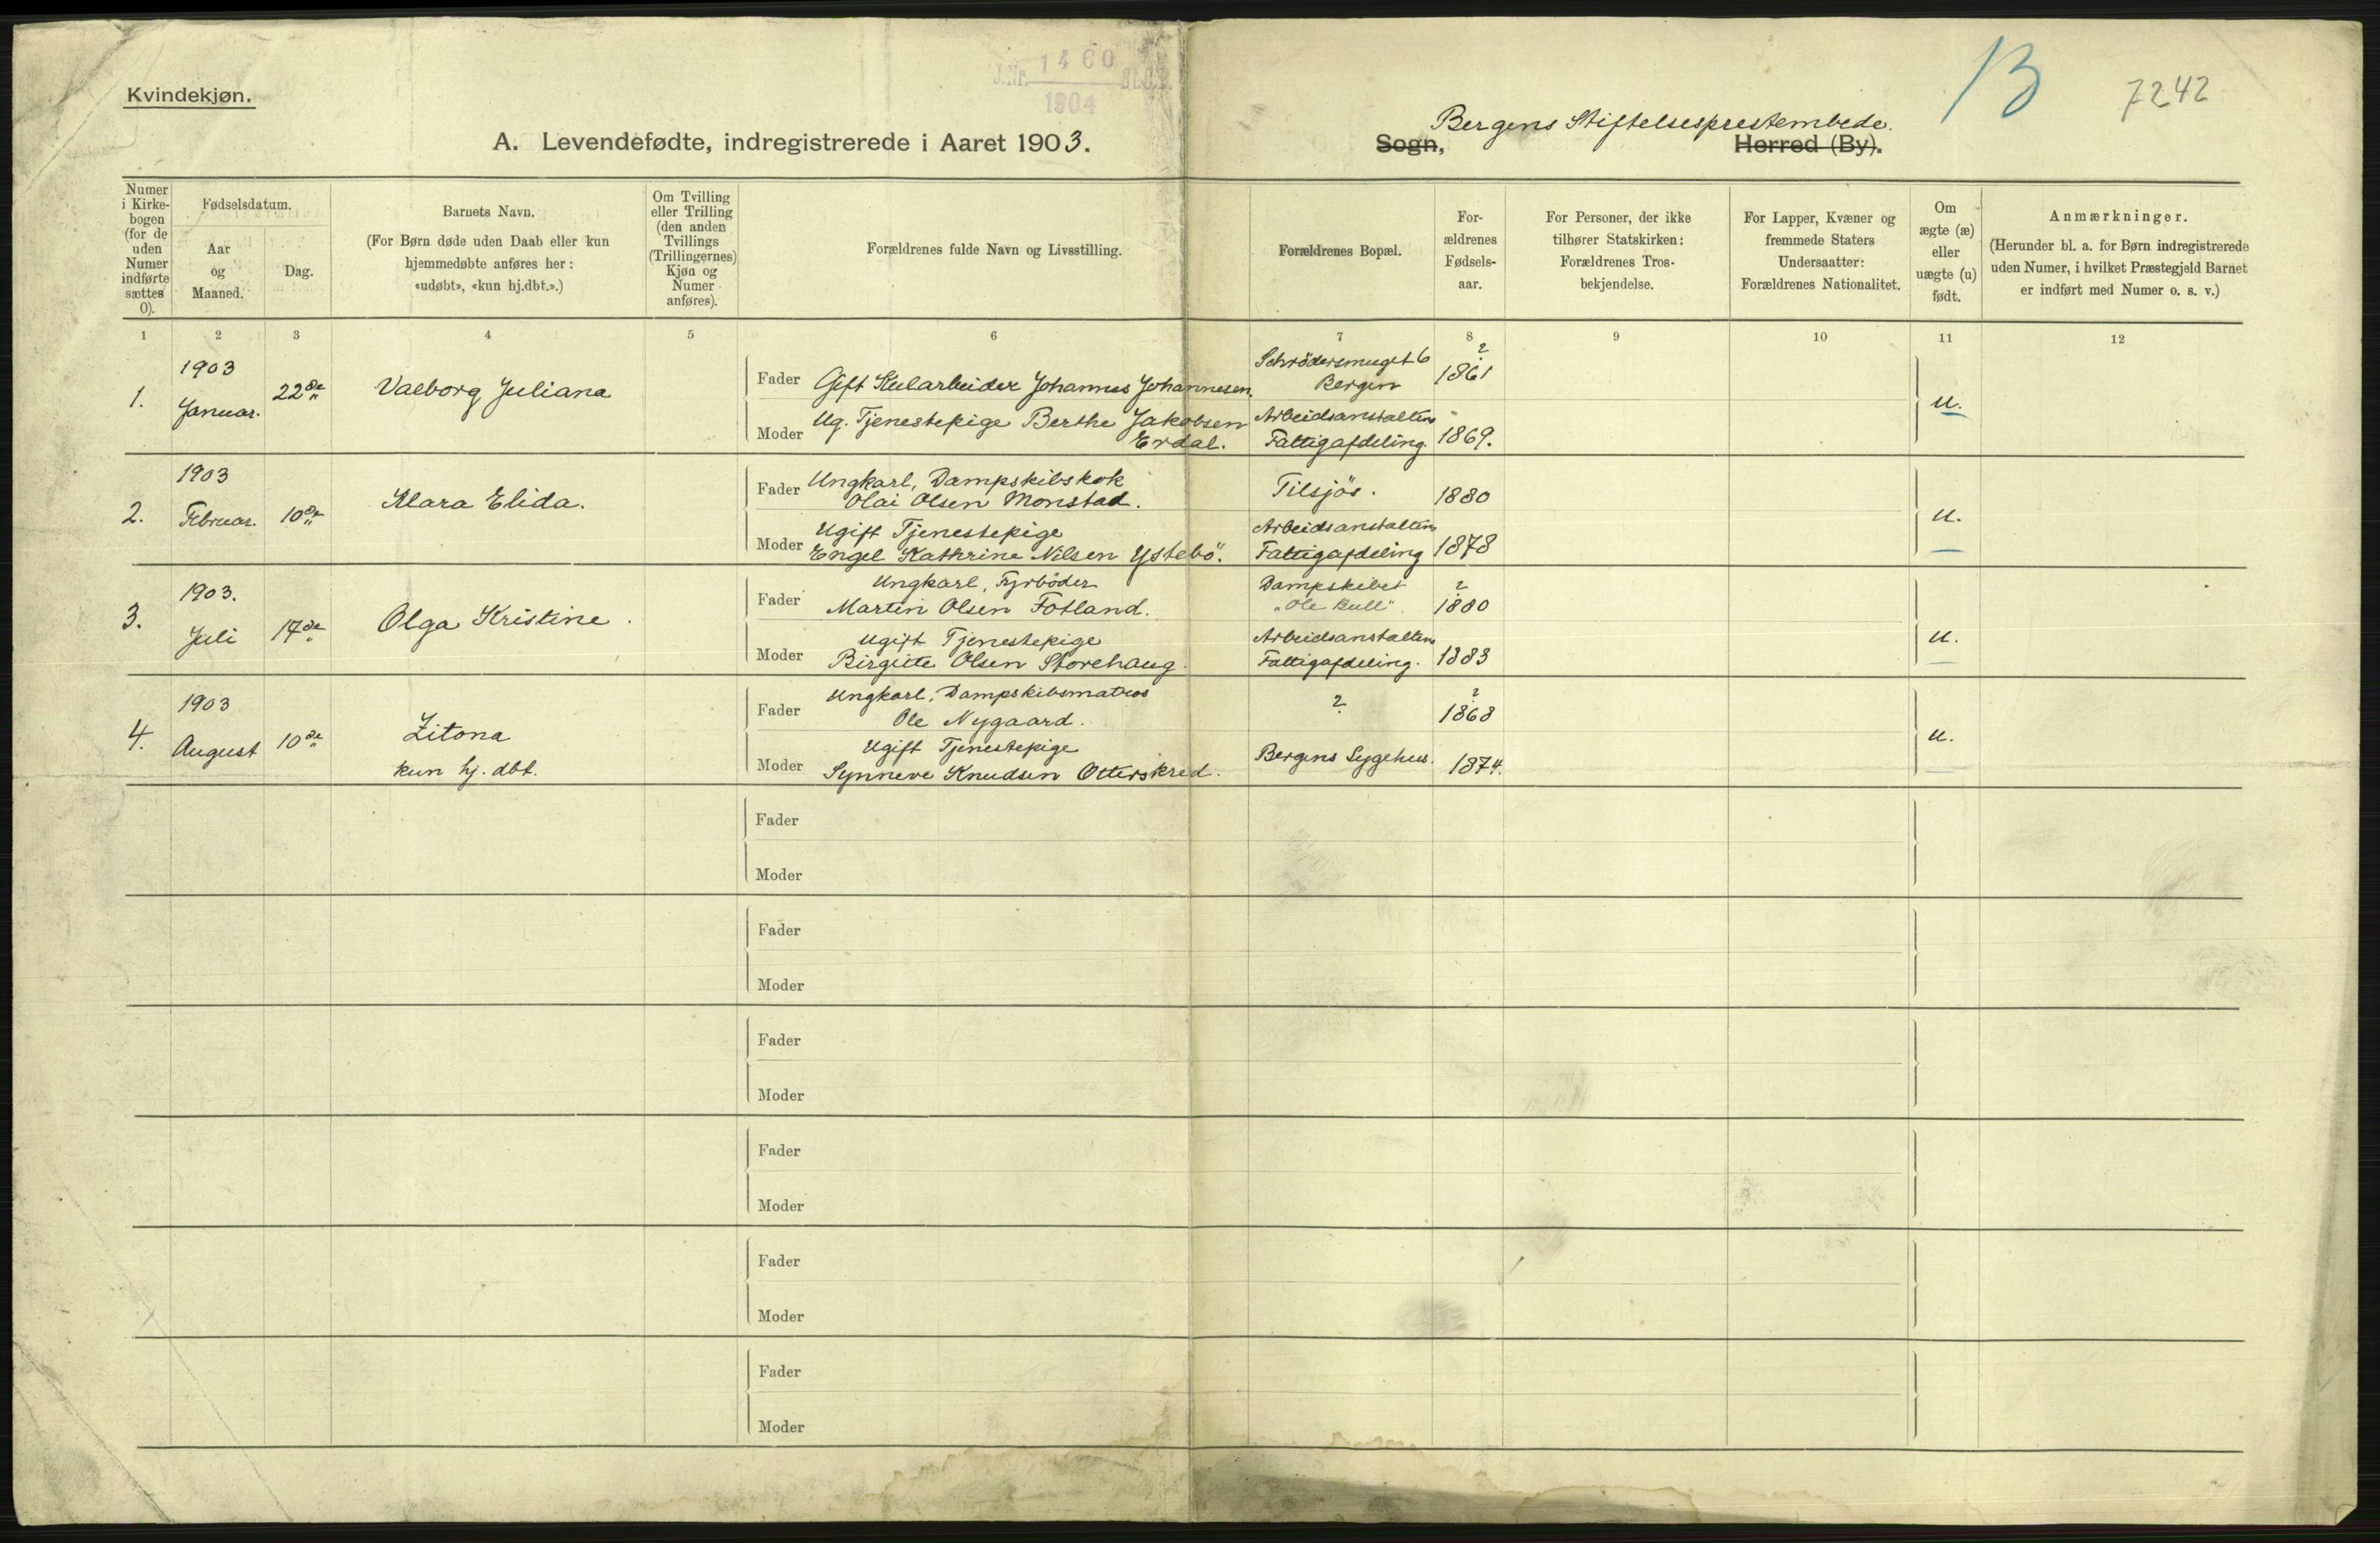 J.Nr. 1460 St.C.B.
1904
B
7242
Kvindekjøn.
Bergens Stiftelsesprestembede.
A. Levendefødte, indregistrerede i Aaret 1903.
Sogn,
Herred (By).
Numer i Kirkebogen (for de uden Numer indførte sættes 0).
Fødselsdatum.
Aar og Maaned.
Dag.
Barnets Navn.
(For Børn døde uden Daab eller kun
hjemmedøbte anføres her:
«udøbt», «kun hj.dbt.».)
Om Tvilling
eller Trilling
(den anden
Tvillings
(Trillingernes)
Kjøn og
Numer
anføres).
Forældrenes fulde Navn og Livsstilling.
Forældrenes Bopæl.
For-
ældrenes
Fødsels-
aar.
For Personer, der ikke
tilhører Statskirken:
Forældrenes Tros-
bekjendelse.
For Lapper, Kvæner og
fremmede Staters
Undersaatter:
Forældrenes Nationalitet.
Om
ægte (æ)
eller
uægte (u)
født.
Anmærkninger.
(Herunder bl. a. for Børn indregistrerede
uden Numer, i hvilket Præstegjeld Barnet
er indført med Numer o. s. v.)
1 2 3 4 5 6 7 8 9 10 11 12
1.
1903
Januar.
22de
Valborg Juliana
Fader Gift Kularbeider Johannes Johannesen.
Schrödersmuget 6
Bergen
?
1861
Moder Ug. Tjenestepige Berthe Jakobsen
Erdal.
Arbeidsanstaltens
Fattigafdeling.
1869.
u.
2.
1903
Februar.
10de
Klara Elida.
Fader Ungkarl, Dampskibskok
Olai Olsen Monstad.
Tilsjös.
1880
Moder Ugift Tjenestepige
Engel Kathrine Nilsen Ystebö.
Arbeidsanstaltens
Fattigafdeling
1878
u.
3.
1903.
Juli
17de
Olga Kristine
Fader Ungkarl, Fyrböder
Martin Olsen Fotland.
Dampskibet
"Ole Bull".
?
1880
Moder Ugift Tjenestepige
Birgitte Olsen Storehaug.
Arbeidsanstaltens
Fattigafdeling.
1883
u.
4.
1903
August
10de
Zitona
kun hj. dbt.
Fader Ungkarl, Dampskibsmatros
Ole Nygaard.
?
?
1868
Moder Ugift Tjenestepige
Synneve Knudsen Otterskred.
Bergens Sygehus.
1874.
u.
Fader
Moder
Fader
Moder
Fader
Moder
Fader
Moder
Fader
Moder
Fader
Moder